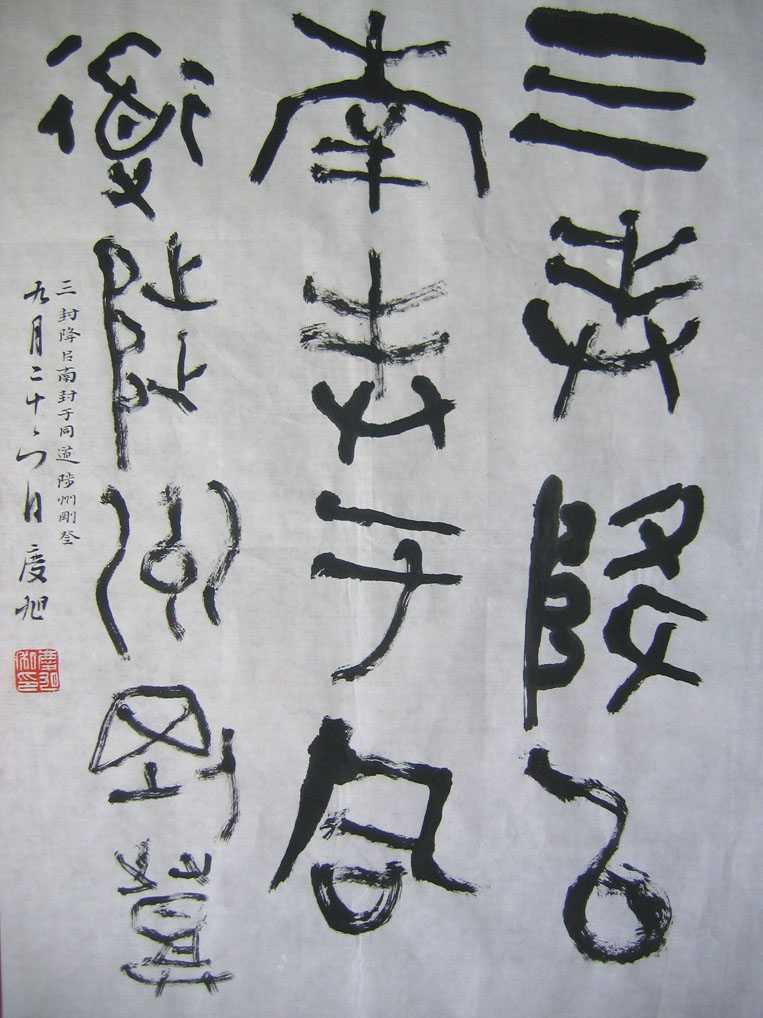 三封降㠯
南封于同
道陟州剛登
三封降㠯南封于同道陟州剛登
九月二十六日 度旭